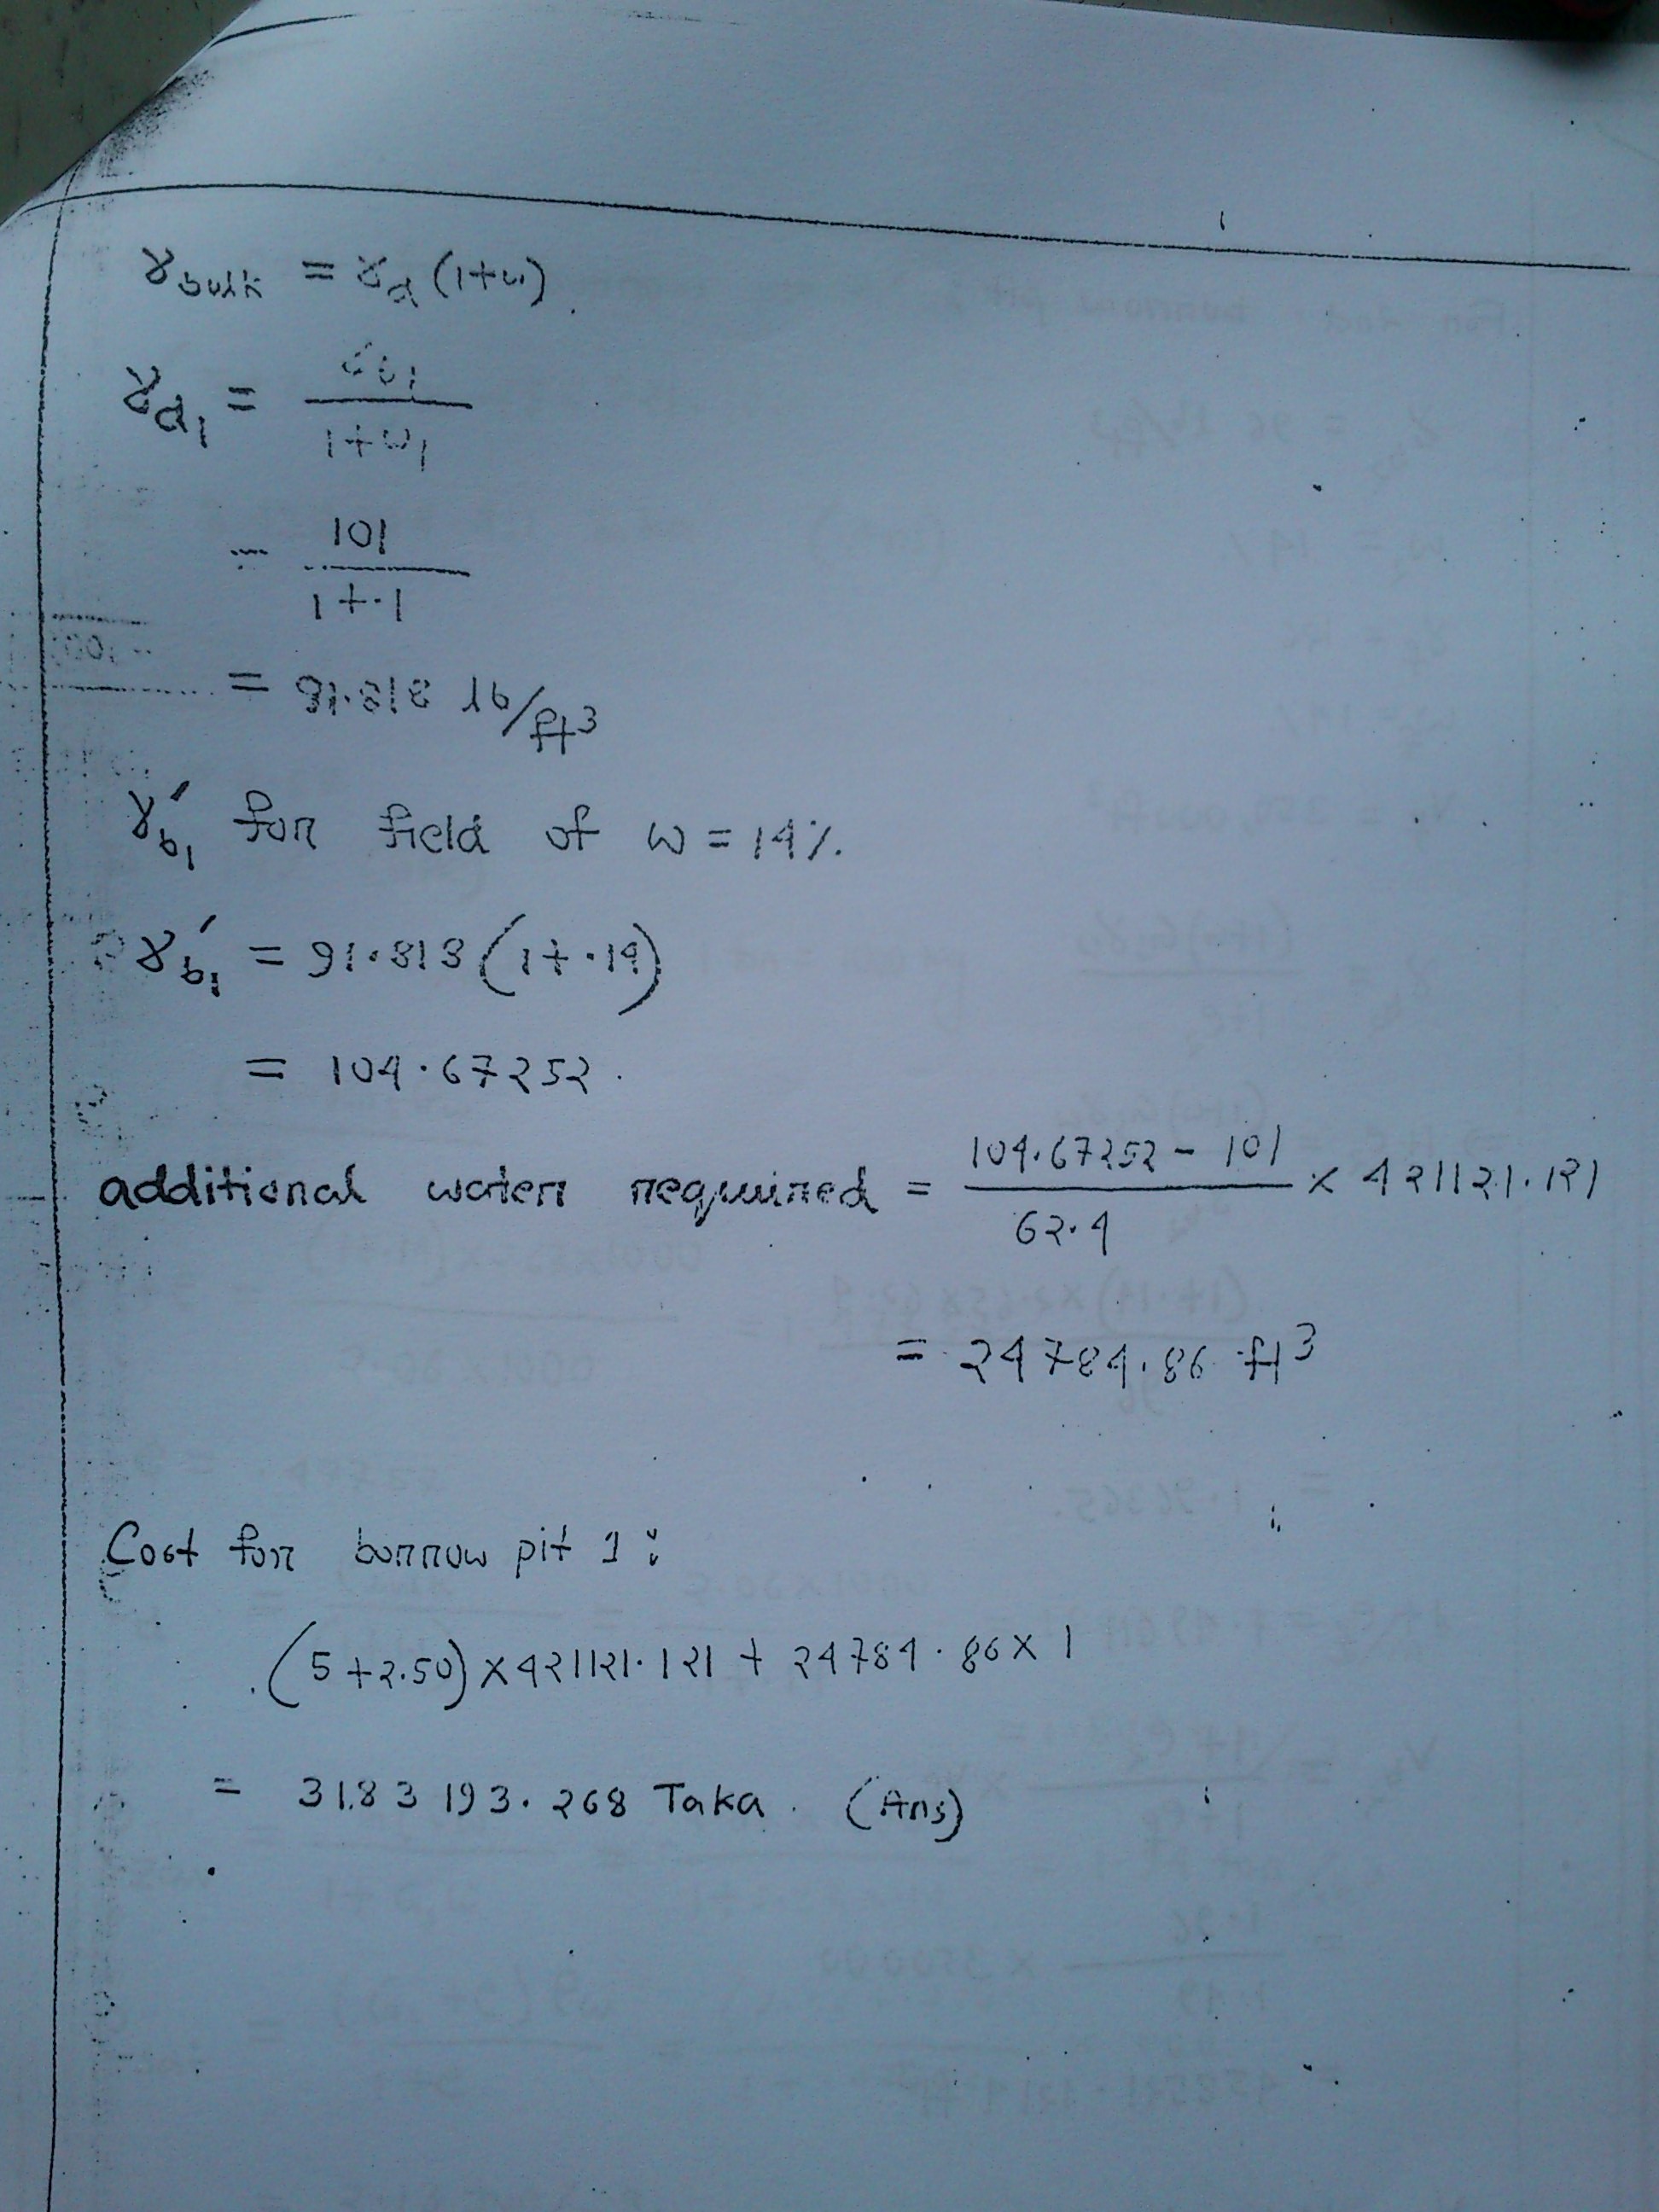 γbulk = γd (1+w)
γd1 = γb1 / 1+w1
= 101 / 1+.1
= 91.818 lb/ft³
γ′b1 for field of w = 14%.
γ′b1 = 91.818 (1+.14)
= 104.67252.
additional water required = 104.67252 - 101 / 62.4 × 421121.121
= 24784.86 ft³
Cost for borrow pit 1:
(5+2.50) × 421121.121 + 24784.86 × 1
= 3183193.268 Taka. (Ans)